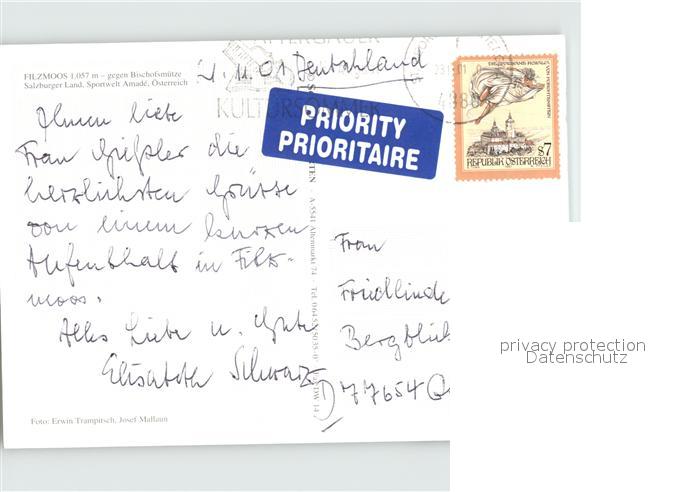 FILZMOOS 1.057 m – gegen Bischofsmütze
Salzburger Land, Sportwelt Amadé, Österreich
11.01 Deutschland
ATTERGAUER
KULTURSOMMER
PRIORITY
PRIORITAIRE
REPUBLIK ÖSTERREICH
S7
Ihnen liebe
Frau Gießler die
herzlichsten Grüsse
von einem kurzen
Aufenthalt in Filz-
moos.
Alles Liebe u. Gute
Elisabeth Schwarz
Frau
Friedlinde
Bergblick
77654
A-5541 Altenmarkt 74 · Tel. 06452/5035-0
Foto: Erwin Trampitsch, Josef Mallaun
privacy protection
Datenschutz